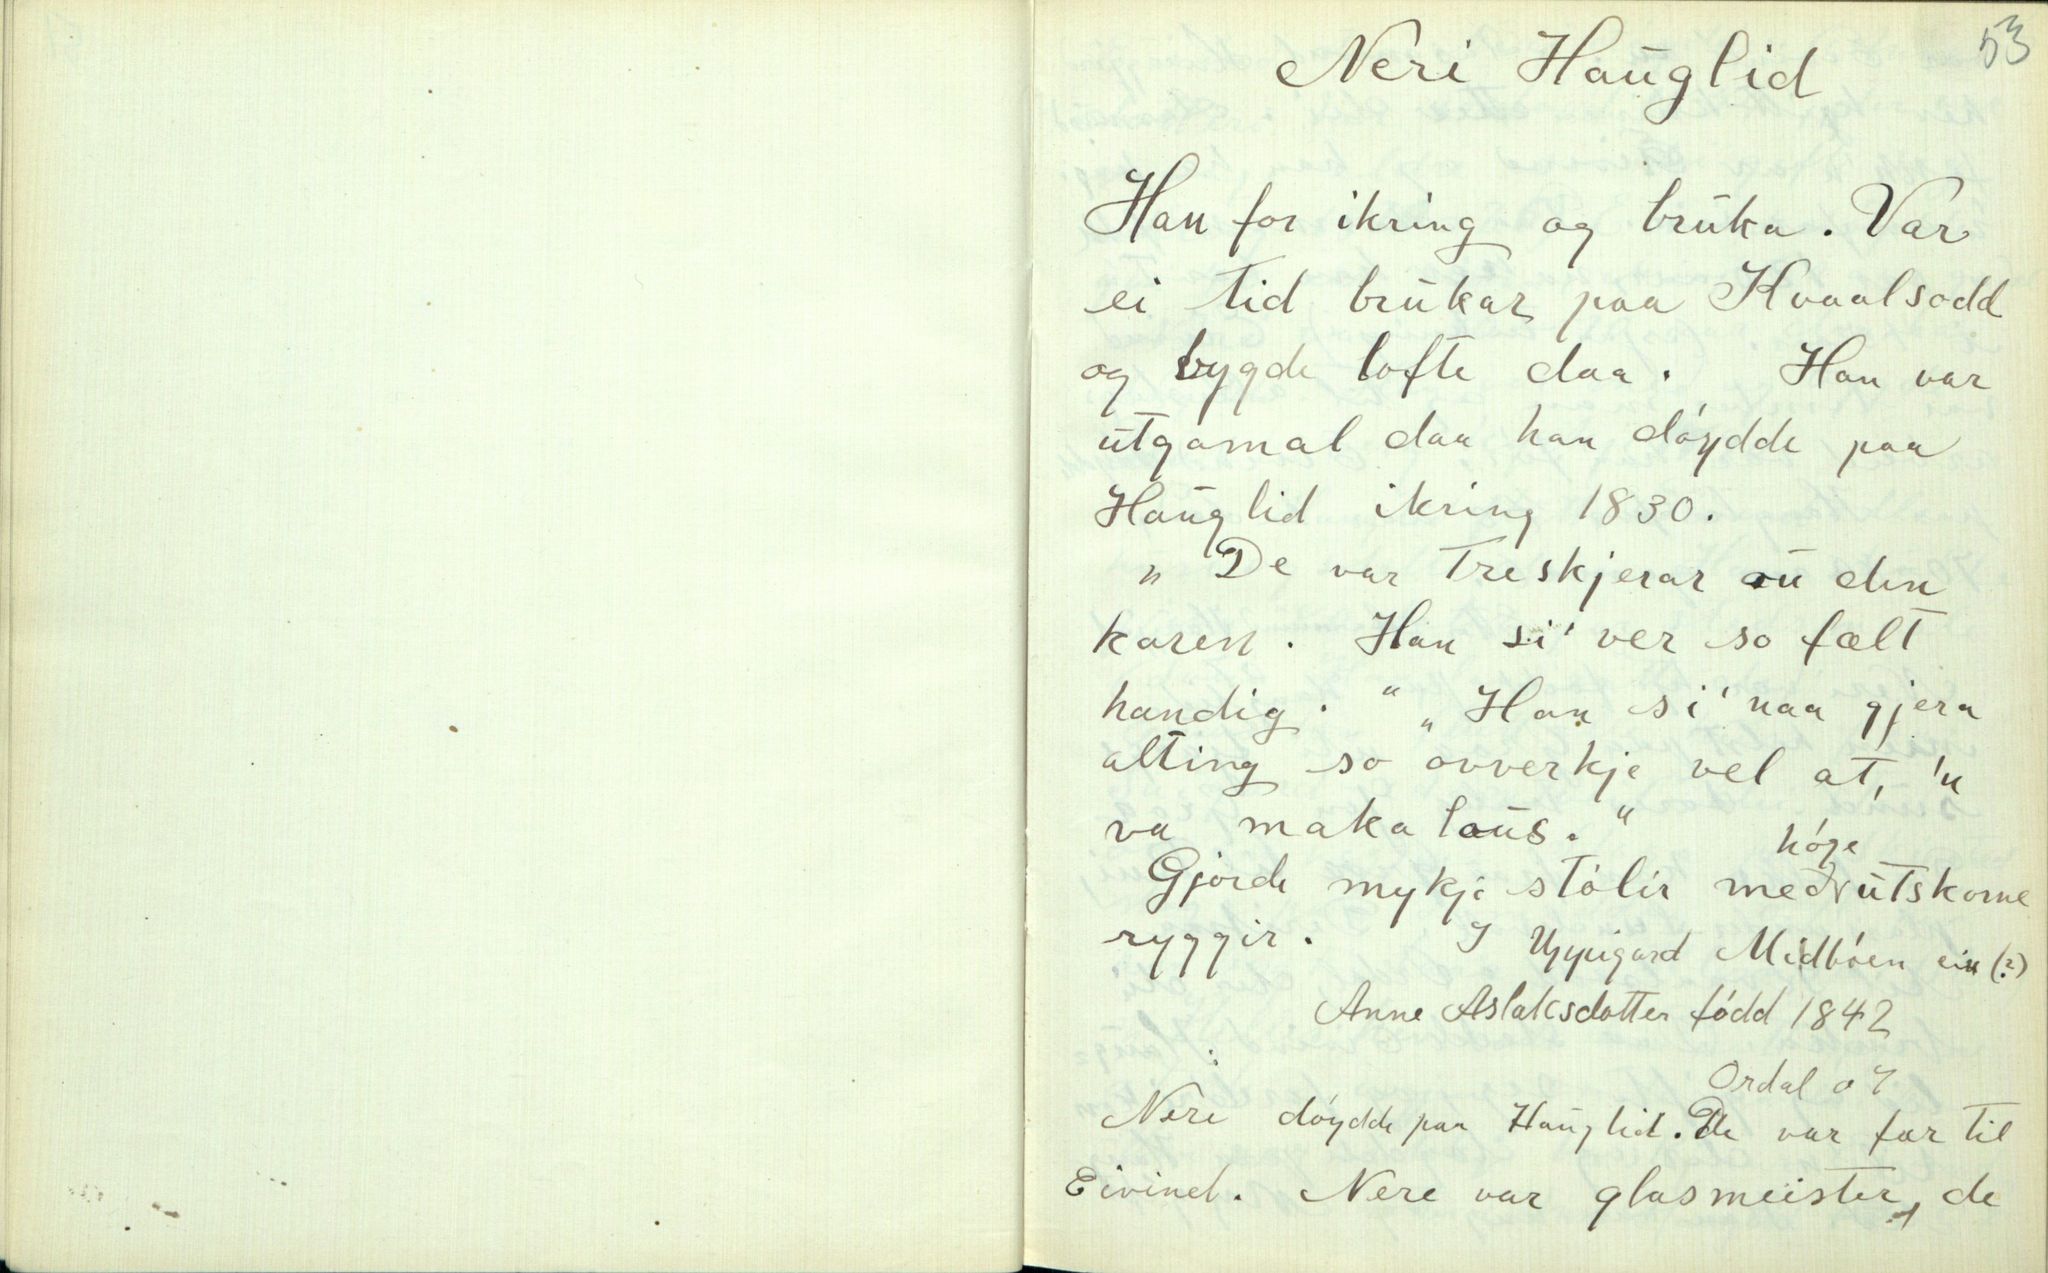 53
Neri Hauglid
Han for ikring og bruka. Var
ei tid brukar paa Kvaalsodd
og bygde lofte daa. Han var
utgamal daa han døydde paa
Hauglid ikring 1830.
„ De var treskjerar au den
karen. Han si' ver so fælt
handig. “ „ Han si' naa gjera
alting so ovverkje vel at, 'n
va makalaus. “
høge
Gjorde mykje stólir med utskorne
ryggir. I Uppigard Midbøen ein (?)
Anne Aslaksdotter fødd 1842
Ordal o 7
Nere døydde paa Hauglid. De var far til
Eivind. Nere var glasmeister, de